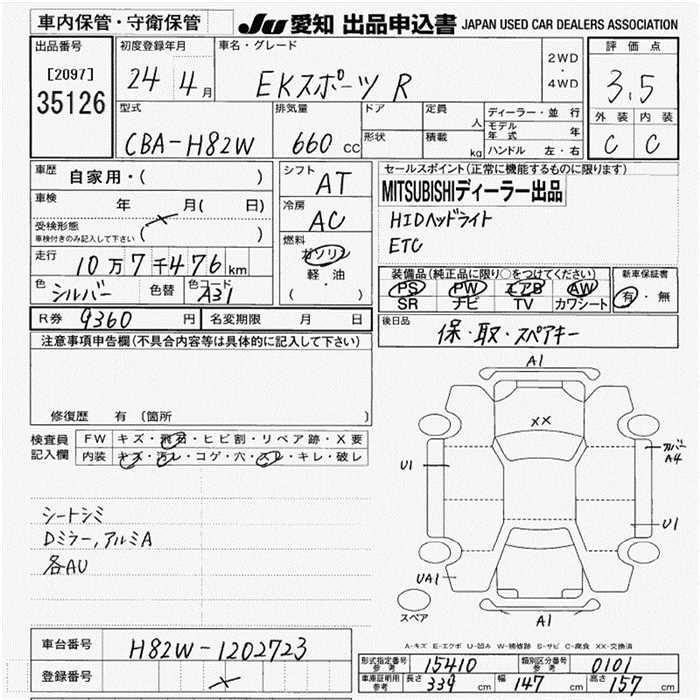 車内保管・守衛保管
JU 愛知 出品申込書 JAPAN USED CAR DEALERS ASSOCIATION
出品番号
[2097]
35126
初度登録年月
24 4月
車名・グレード
EKスポーツ R
2WD
・
4WD
評価点
3.5
外装 内装
C C
型式
CBA-H82W
排気量
660 cc
ドア
形状
定員
人
積載
kg
ディーラー・並行
モデル年式 年
ハンドル 左・右
車歴 自家用・( )
車検 年 月( 日)
受検形態
車検付きのみ記入して下さい ( )
走行 10万7千476km
色 シルバー 色替 色コード A31
シフト AT
冷房 AC
燃料
ガソリン
軽・油
( ・ )
セールスポイント(正常に機能するものに限ります)
MITSUBISHIディーラー出品
HIDヘッドライト
ETC
装備品(純正品に限り○をつけてください)
PS PW エアB AW
SR ナビ TV カワシート
新車保証書
有・無
R券 9360 円 名変期限 月 日
後日品 保・取・スペアキー
注意事項申告欄(不具合内容等は具体的に記入して下さい)
修復歴 有 (箇所 )
検査員記入欄
FW キズ・飛石・ヒビ割・リペア跡・X要
内装 キズ・汚レ・コゲ・穴・スレ・キレ・破レ
シートシミ
Dミラー,アルミA
各AU
A1
XX
カバー
A4
U1
U1
UA1
A1
スペア
A-キズ E-エクボ U-凹み W-補修跡 S-サビ C-腐食 XX-交換済
車台番号 H82W-1202723
登録番号
型式指定番号参考 15410 類別区分番号参考 0101
車庫証明用参考 長さ 339 cm 幅 147 cm 高さ 157 cm